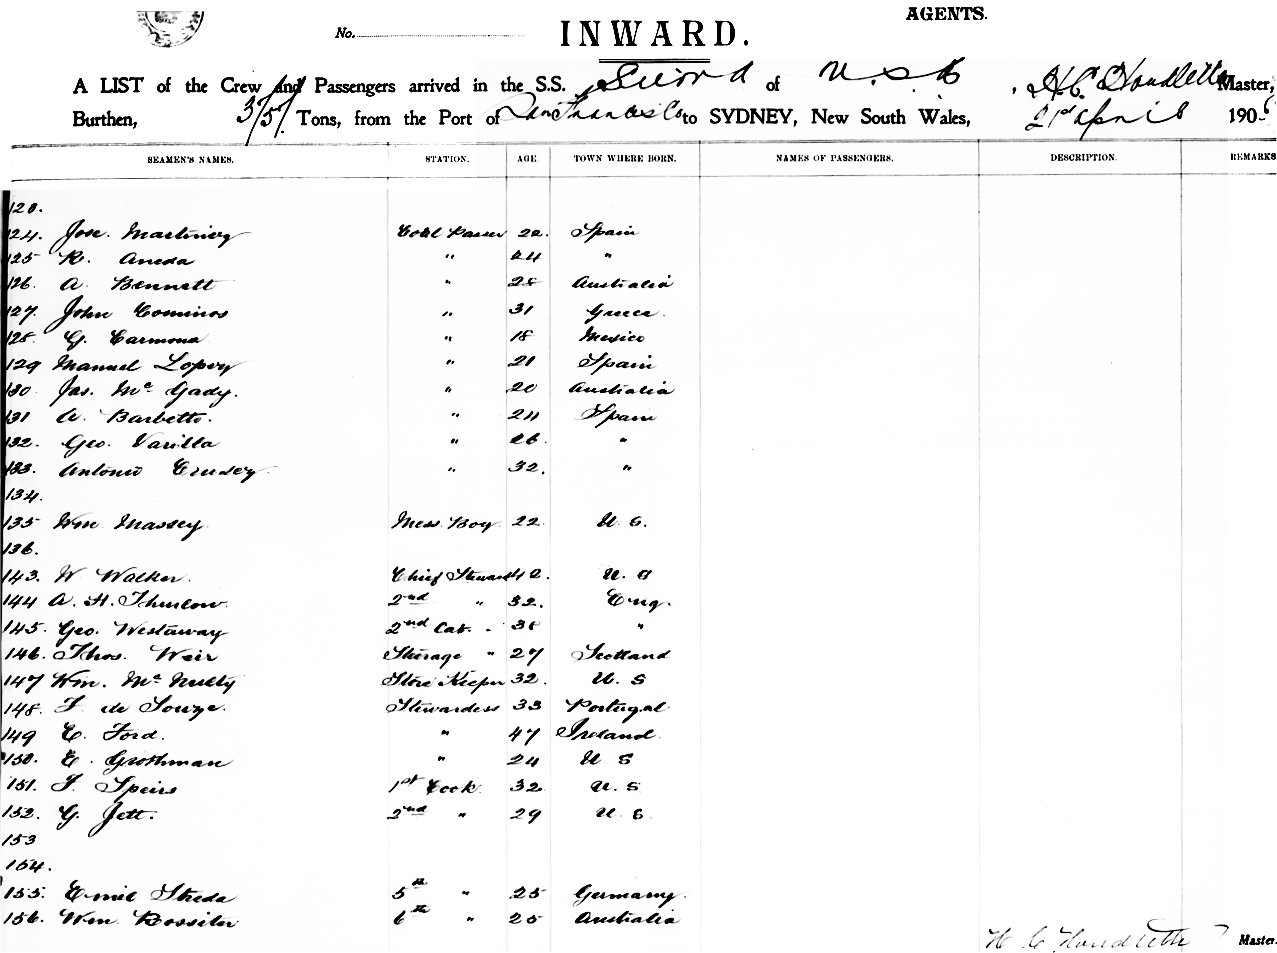 AGENTS.
No.
INWARD.
A LIST of the Crew and Passengers arrived in the S.S. Sierra of U.S.A. H.C. Houdlette Master,
Burthen, 3/51. Tons, from the Port of San Francisco to SYDNEY, New South Wales, 21st April 190
SEAMEN'S NAMES. STATION. AGE. TOWN WHERE BORN. NAMES OF PASSENGERS. DESCRIPTION. REMARKS
124. Jose Martinez Coal Passer 22. Spain
125 R. Aneda " 24 "
126. A. Bennett " 28 Australia
127. John Cominos " 31 Greece.
128. G. Carmona " 18 Mexico
129 Manuel Lopez " 21 Spain
130 Jas. Mc Gady. " 20 Australia
131 A. Barbetto. " 24 Spain
132. Geo. Varilla " 26. "
133. Antonio " 32. "
134.
135 Wm Massey Mess Boy 22 U.S.
136.
143. W Walker. Chief Steward 42. U.S
144 A. H. Thurlow 2nd " 32. Eng.
145. Geo. Westaway 2nd Cab. " 38 "
146. Thos. Weir Steerage " 27 Scotland
147 Wm. Mc Nulty Store Keeper 32. U.S
148. F de Souza. Stewardess 33 Portugal
149 E. Ford. " 47 Ireland.
150. E. Grothman " 24 U S
151. F. Speirs 1st Cook. 32 U.S
152. G. Jett. 2nd " 29 U.S.
153
154.
155. Emil Streda 5th " 25 Germany.
156. Wm. Rossiter 6th " 25 Australia
H C Houdlette Master.